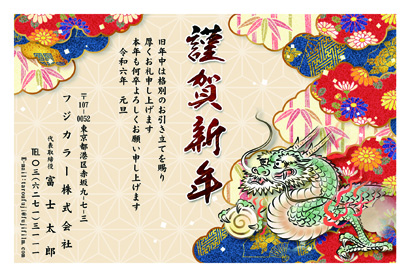 謹賀新年
旧年中は格別のお引き立てを賜り
厚くお礼申し上げます
本年も何卒よろしくお願い申し上げます
令和六年 元旦
〒107-0052
東京都港区赤坂九-七-三
フジカラー株式会社
代表取締役 富士太郎
TEL 〇三(六二七一)三一一一
E-mail:taroufuj@fujifilm.com